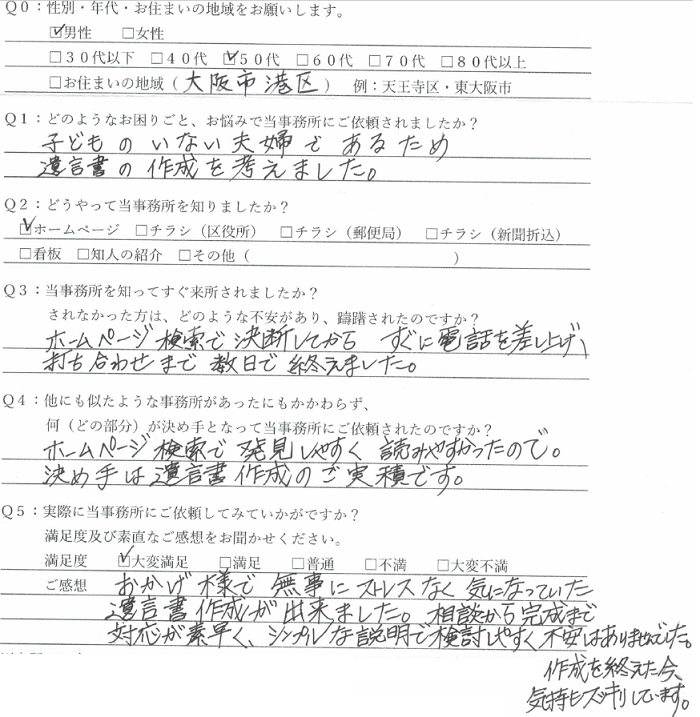 Q0：性別・年代・お住まいの地域をお願いします。
☑男性　□女性
□30代以下　□40代　☑50代　□60代　□70代　□80代以上
□お住まいの地域（大阪市港区）　例：天王寺区・東大阪市
Q1：どのようなお困りごと、お悩みで当事務所にご依頼されましたか？
子どものいない夫婦であるため
遺言書の作成を考えました。
Q2：どうやって当事務所を知りましたか？
☑ホームページ　□チラシ（区役所）　□チラシ（郵便局）　□チラシ（新聞折込）
□看板　□知人の紹介　□その他（　　　　　　　　　　）
Q3：当事務所を知ってすぐ来所されましたか？
されなかった方は、どのような不安があり、躊躇されたのですか？
ホームページ検索で決断してから すぐに電話を差し上げ、
打ち合わせまで数日で終えました。
Q4：他にも似たような事務所があったにもかかわらず、
何（どの部分）が決め手となって当事務所にご依頼されたのですか？
ホームページ検索で発見しやすく 読みやすかったので。
決め手は遺言書作成のご実積です。
Q5：実際に当事務所にご依頼してみていかがですか？
満足度及び素直なご感想をお聞かせください。
満足度　☑大変満足　□満足　□普通　□不満　□大変不満
ご感想　おかげ様で無事にストレスなく気になっていた
遺言書作成が出来ました。相談から完成まで
対応が素早く、シンプルな説明で検討しやすく不安はありませんでした。
作成を終えた今、
気持もスッキリしています。